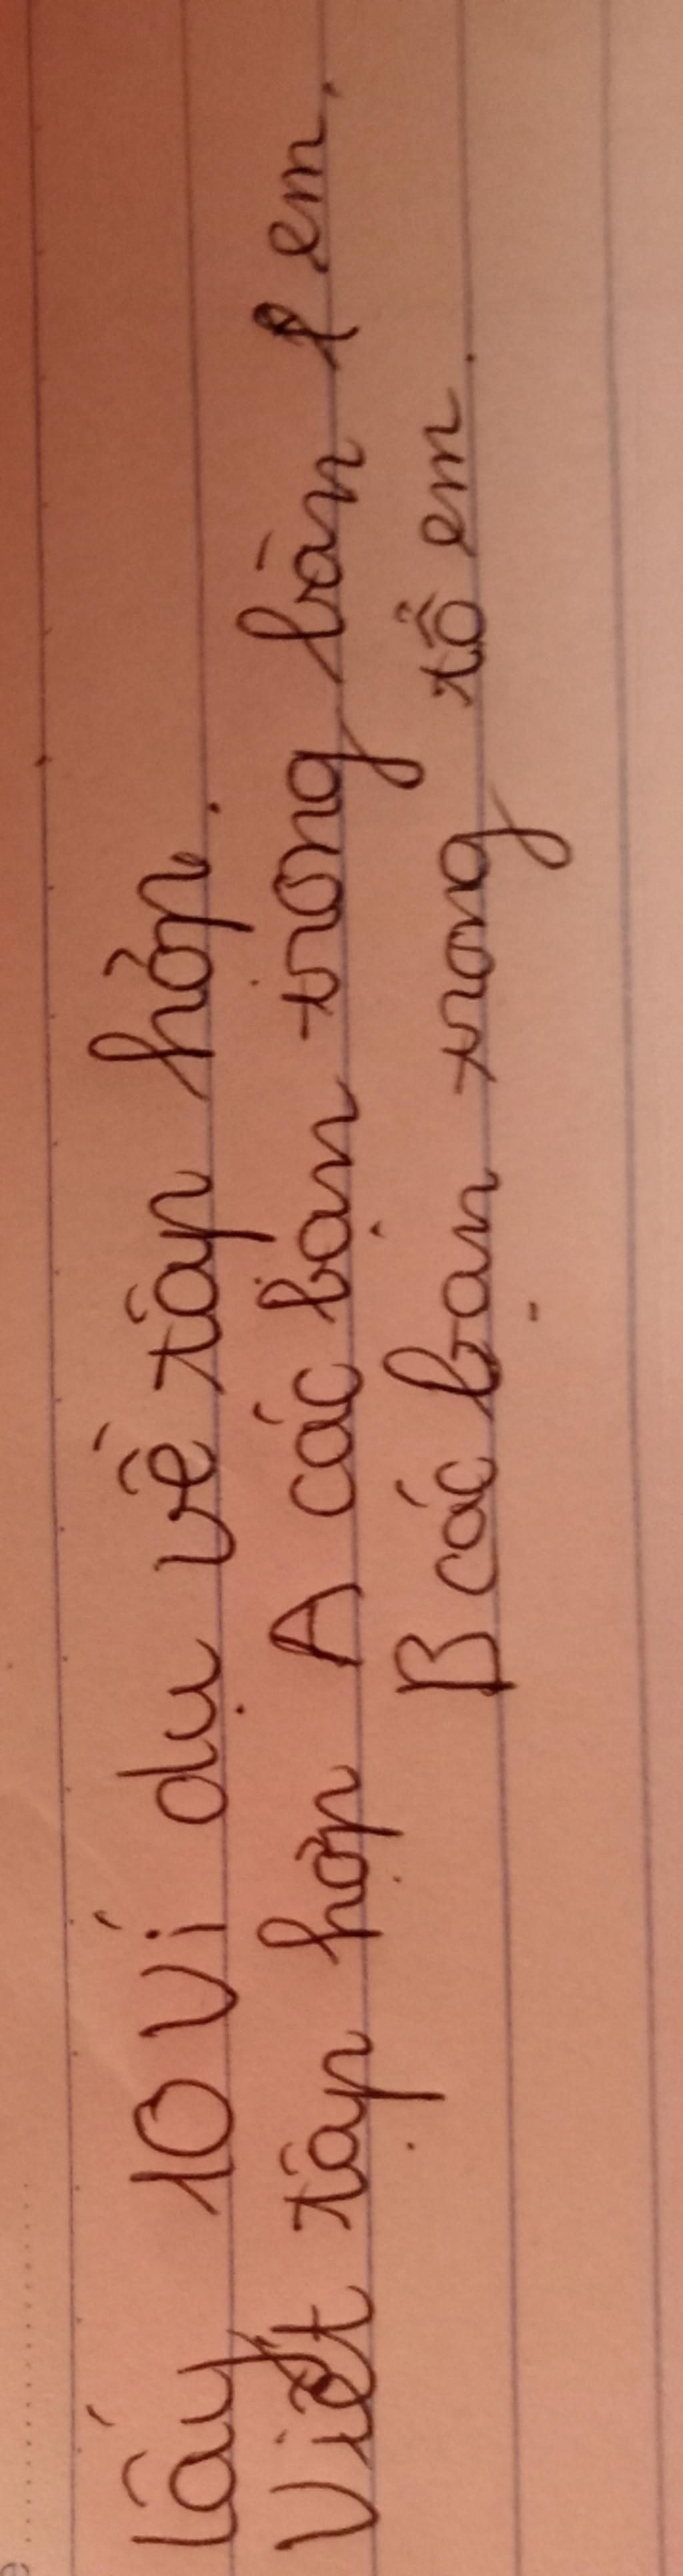 Lấy 10 ví dụ về tập hợp.
Viết tập hợp A các bạn trong bàn em.
B các bạn trong tổ em.